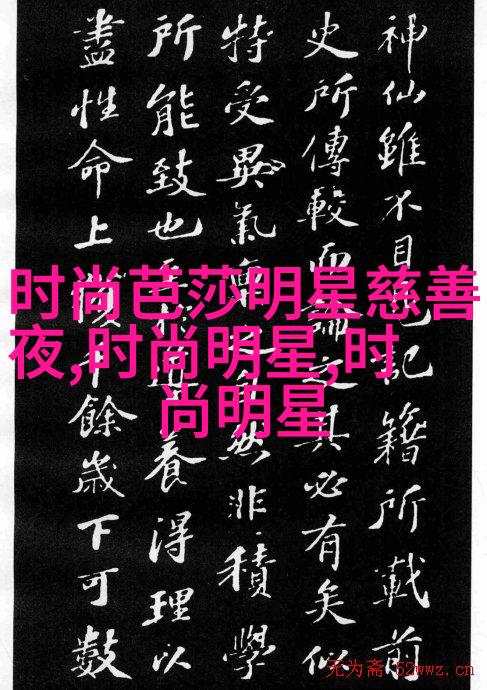 时尚芭莎明星慈善
夜,时尚明星,时
尚明星
神仙雖不目見記籍所載前
史所傳較而論之其必有矣似
特受異氣稟之自然非積學
所能致也至於導養得理以
盡性命上獲千餘歲下可數
无为斋 52wwz.cn